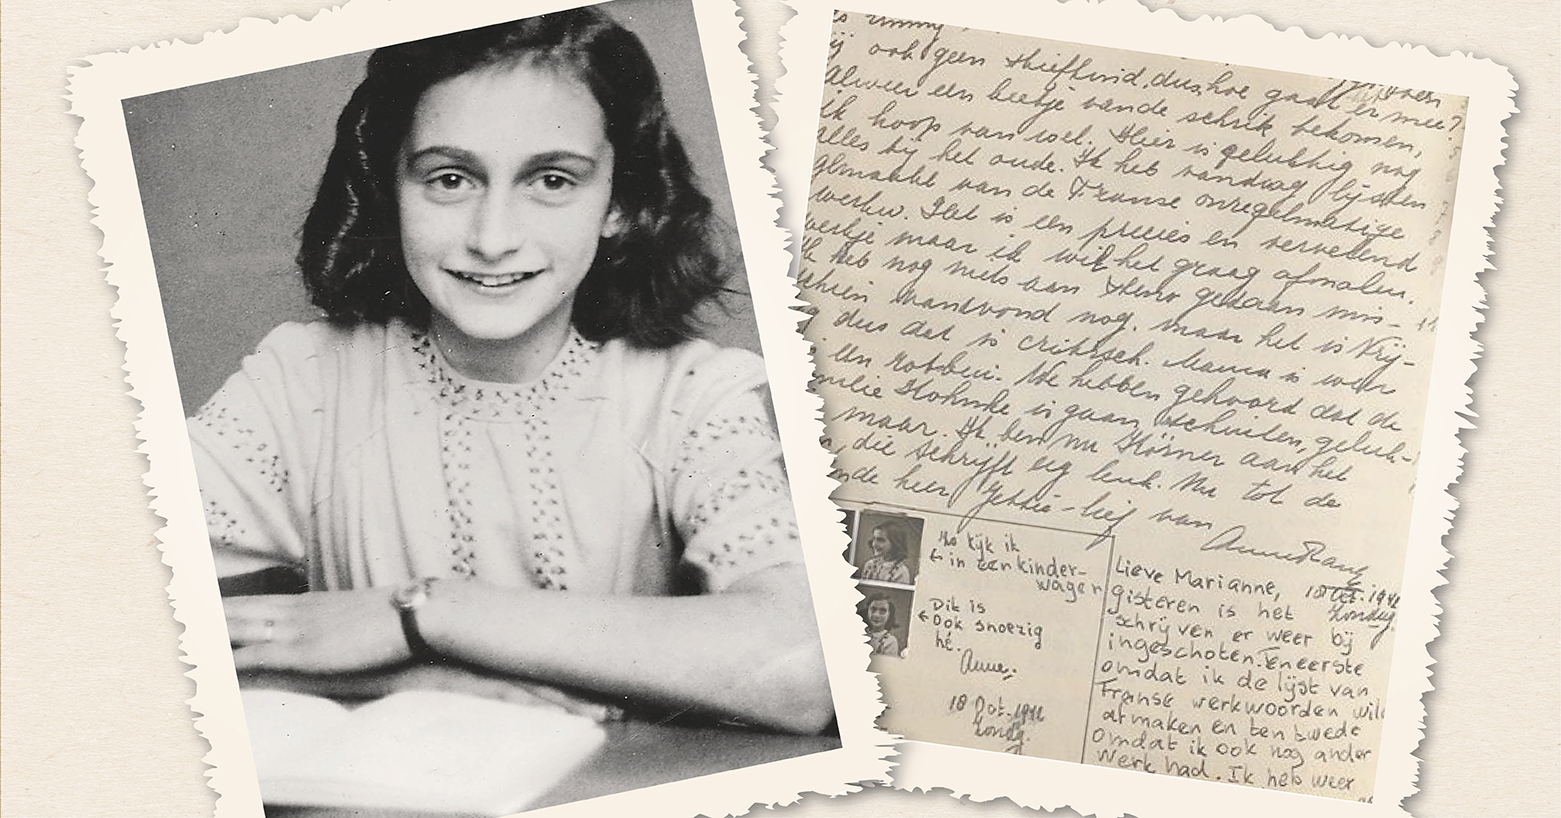 ook geen stiefkind, dus hoe gaat er mee?
alweer een beetje van de schrik bekomen,
ik hoop van wel. Hier is gelukkig nog
alles bij het oude. Ik heb vandaag lijsten
gemaakt van de Franse onregelmatige
werkw. Het is een precies en vervelend
werkje maar ik wil het graag afmaken.
Ik heb nog niets aan Steno gedaan mis-
schien vanavond nog, maar het is Vrij-
dus dat is critisch. Mama is weer
een rotbui. We hebben gehoord dat de
is gaan schuilen, geluk-
maar. Ik ben nu Körner aan het
die schrijft erg leuk. Nu tot de
heer Jettie-lief van
Anne Frank
Ho kijk ik
← in een kinder-
wagen
Dit is
← ook snoezig
hè.
Anne.
18 Oct. 1942
Zondg.
Lieve Marianne, 18 Oct. 1942
Zondag.
gisteren is het
schrijven er weer bij
ingeschoten. Ten eerste
omdat ik de lijst van
Franse werkwoorden wil
afmaken en ten twede
omdat ik ook nog ander
werk had. Ik heb weer